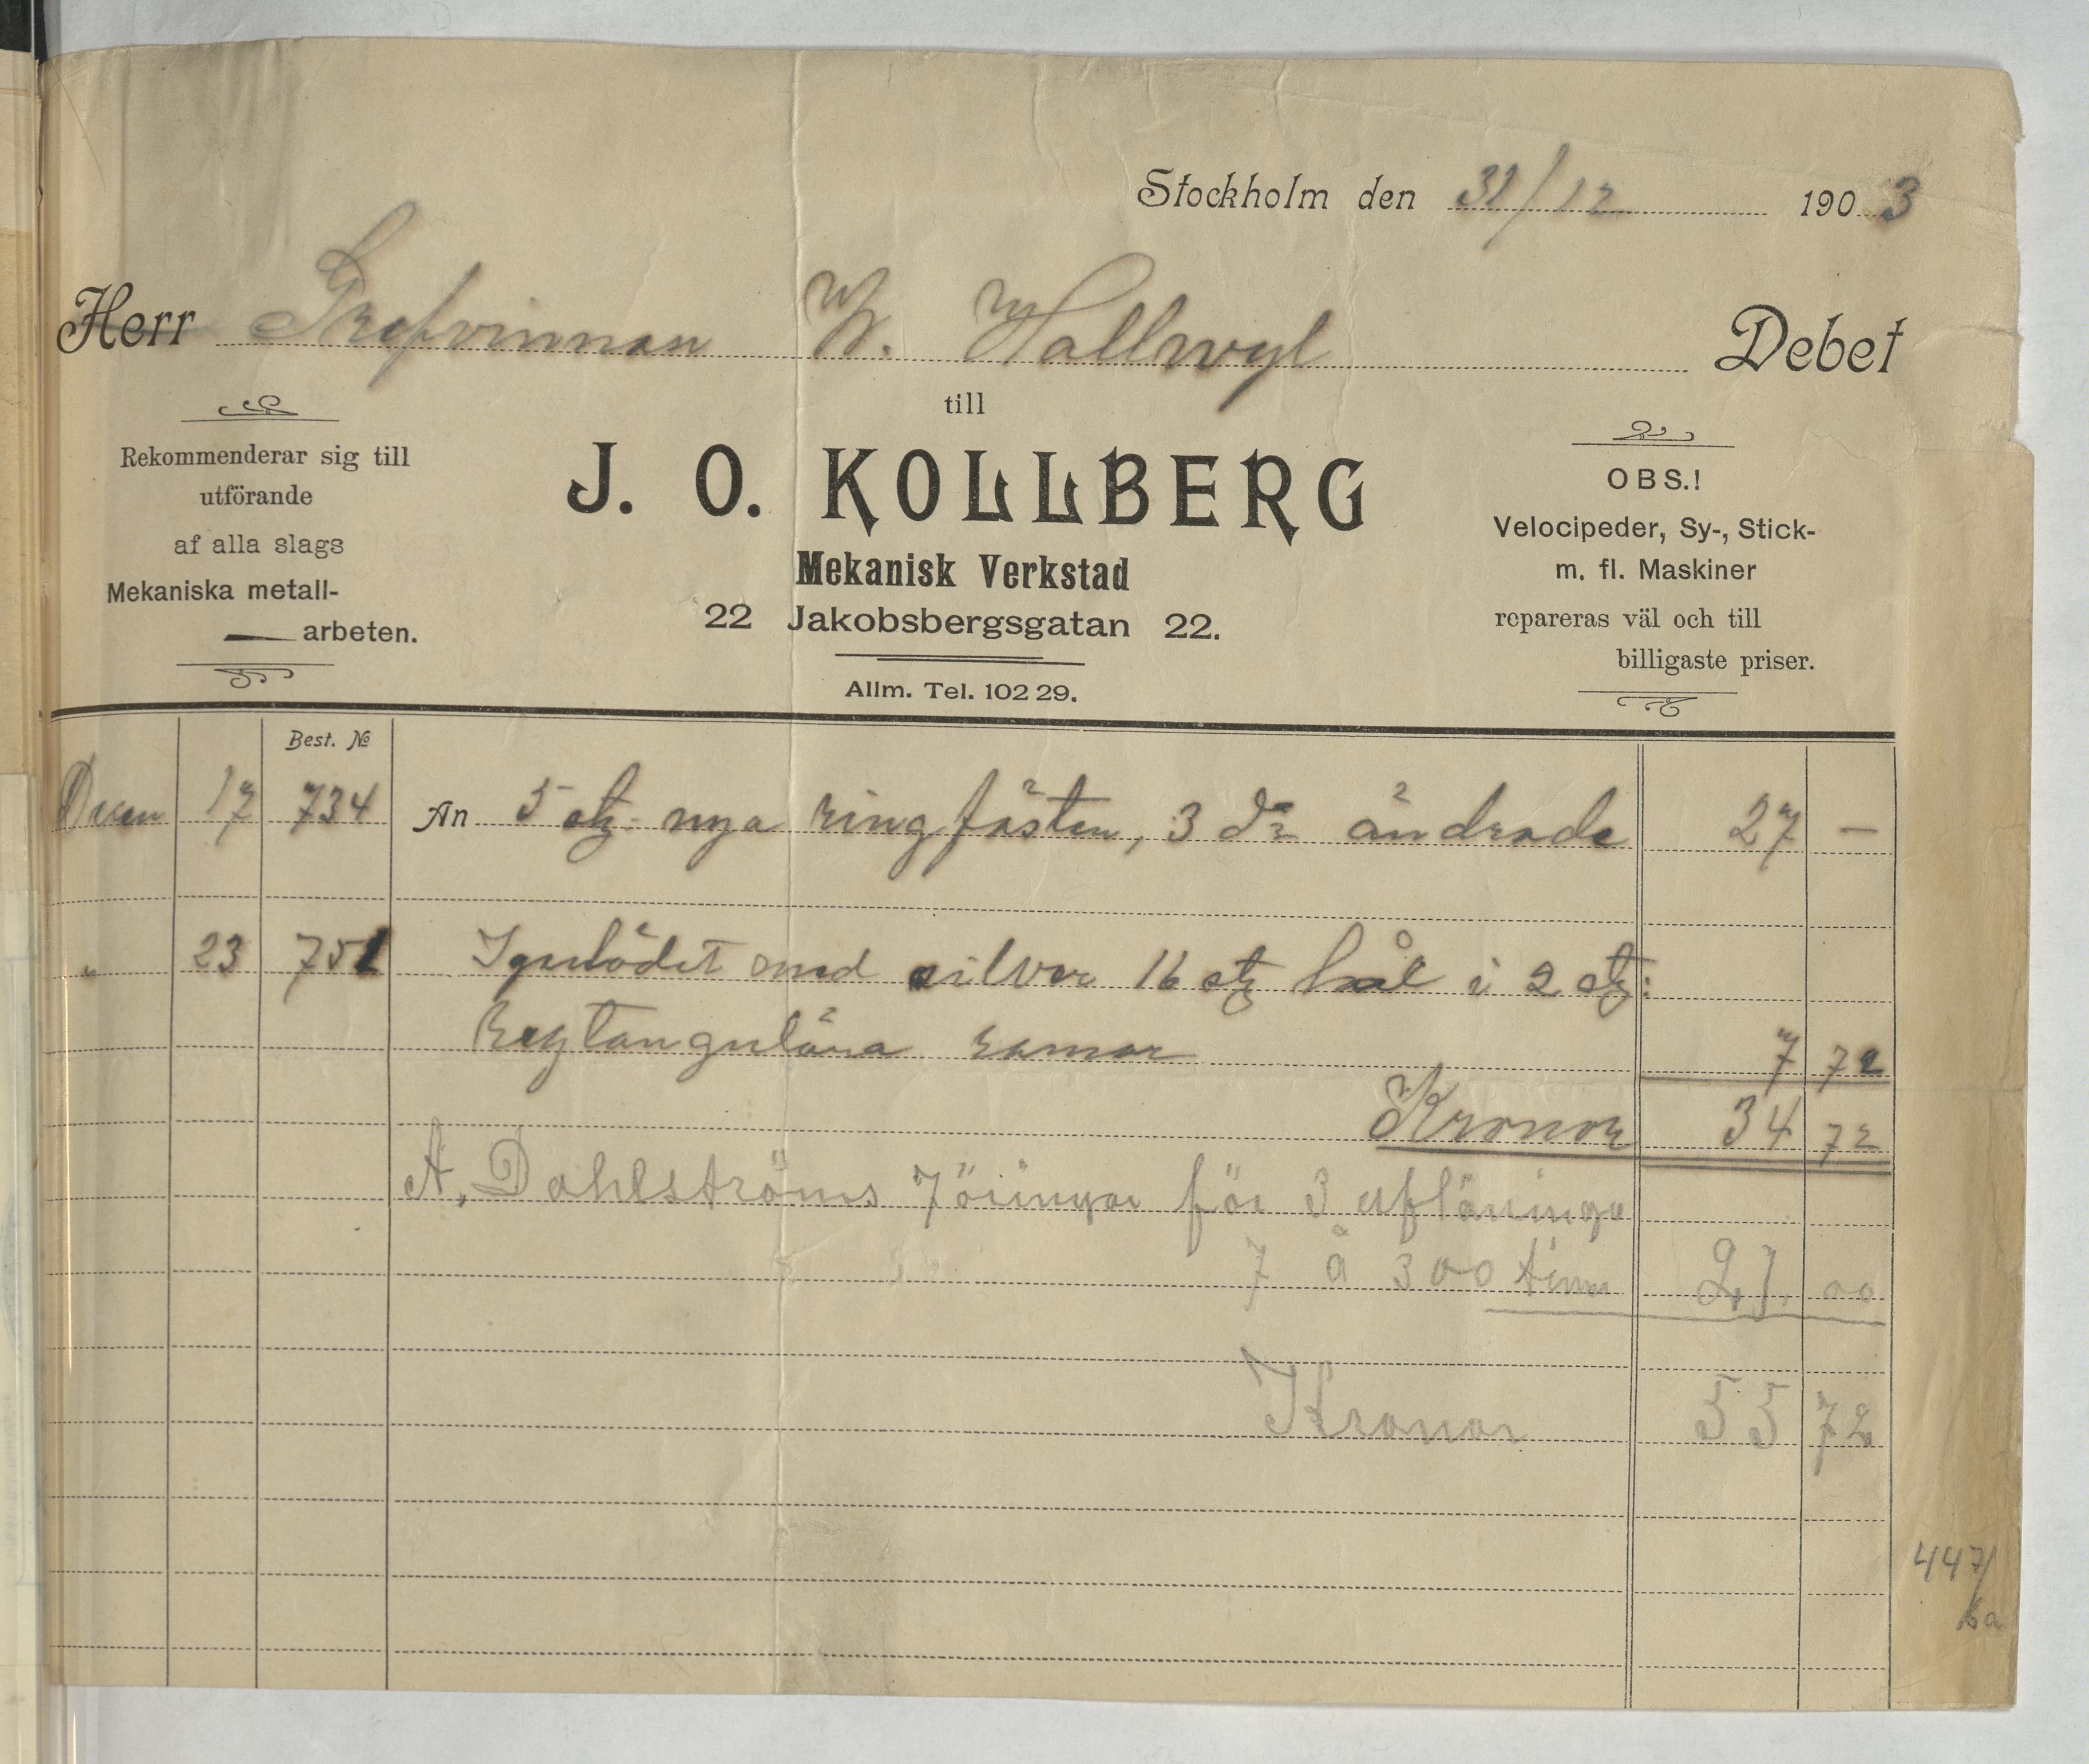 Stockholm den 31/12 1903
Herr Grefvinnan W. Hallwyl Debet
till
Rekommenderar sig till
utförande
af alla slags
Mekaniska metall-
arbeten.
J. O. KOLLBERG
Mekanisk Verkstad
22 Jakobsbergsgatan 22.
Allm. Tel. 102 29.
OBS.!
Velocipeder, Sy-, Stick-
m. fl. Maskiner
repareras väl och till
billigaste priser.
Best. No
Decem 17 734 An 5 st. nya ringfästen, 3 do ändrade 27 —
" 23 751 Igenlödet med silver 16 st hål i 2 st:
Regtangulära ramar 7 72
Kronor 34 72
A. Dahlströms för 3
7 à 3 00 21. 00
Kronor 55 72
447/